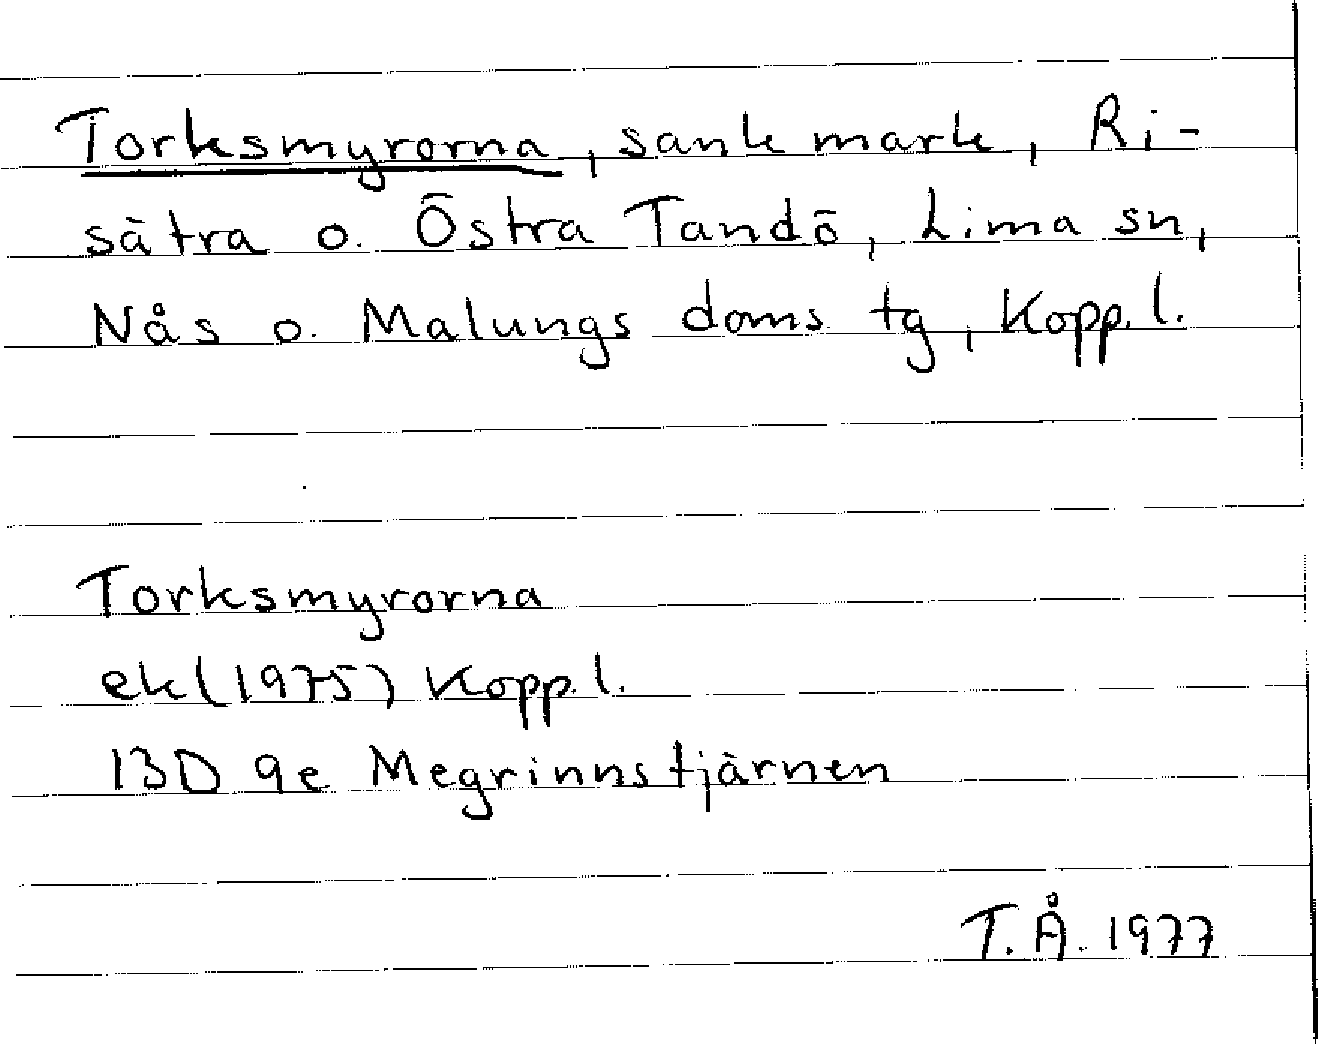 Torksmyrorna, sank mark, Ri-
sätra o. Östra Tandö, Lima sn,
Nås o. Malungs doms. tg, Kopp. l.
Torksmyrorna
ek (1975) Kopp. l.
13D 9e Megrinnstjärnen
T.Å. 1977